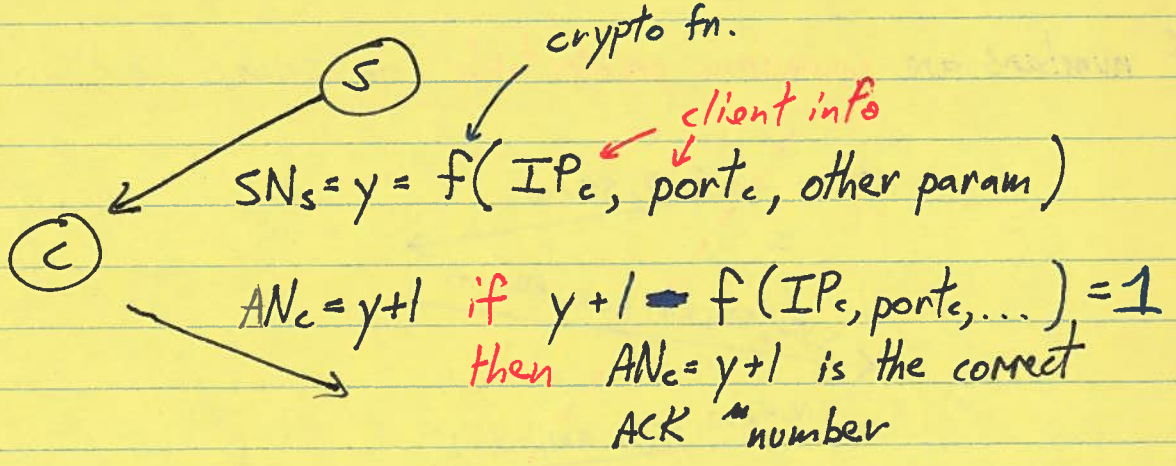 crypto fn.
S
client info
SNs = y = f( IPc, portc, other param )
C
ANc = y+1 if y+1 - f( IPc, portc, ... ) = 1
then ANc = y+1 is the correct
ACK number